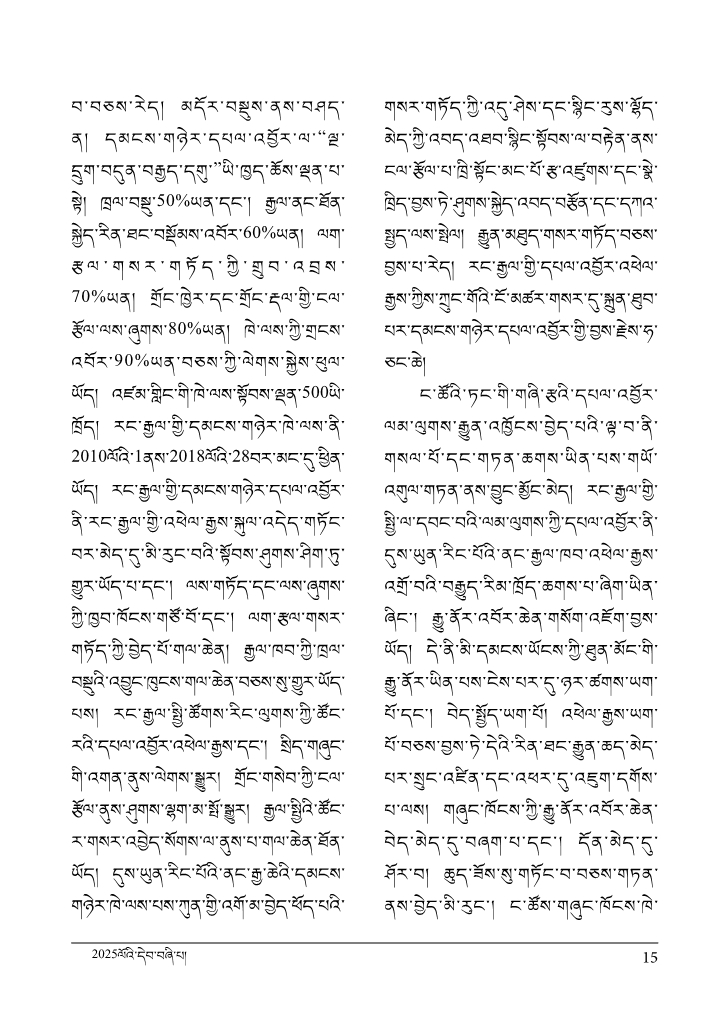 བ་བཅས་རེད། མདོར་བསྡུས་ནས་བཤད་
ན། དམངས་གཉེར་དཔལ་འབྱོར་ལ་“ལྔ་
དྲུག་བདུན་བརྒྱད་དགུ་”ཡི་ཁྱད་ཆོས་ལྡན་པ་
སྟེ། ཁྲལ་བསྡུ་50%ཡན་དང་། རྒྱལ་ནང་ཐོན་
སྐྱེད་རིན་ཐང་བསྡོམས་འབོར་60%ཡན། ལག་
རྩལ་གསར་གཏོད་ཀྱི་གྲུབ་འབྲས་
70%ཡན། གྲོང་ཁྱེར་དང་གྲོང་རྡལ་གྱི་ངལ་
རྩོལ་ལས་ཞུགས་80%ཡན། ཁེ་ལས་ཀྱི་གྲངས་
འབོར་90%ཡན་བཅས་ཀྱི་ལེགས་སྐྱེས་ཕུལ་
ཡོད། འཛམ་གླིང་གི་ཁེ་ལས་སྟོབས་ལྡན་500ཡི་
ཁྲོད། རང་རྒྱལ་གྱི་དམངས་གཉེར་ཁེ་ལས་ནི་
2010ལོའི་1ནས་2018ལོའི་28བར་མང་དུ་ཕྱིན་
ཡོད། རང་རྒྱལ་གྱི་དམངས་གཉེར་དཔལ་འབྱོར་
ནི་རང་རྒྱལ་གྱི་འཕེལ་རྒྱས་སྐུལ་འདེད་གཏོང་
བར་མེད་དུ་མི་རུང་བའི་སྟོབས་ཤུགས་ཤིག་ཏུ་
གྱུར་ཡོད་པ་དང་། ལས་གཏོད་དང་ལས་ཞུགས་
ཀྱི་ཁྱབ་ཁོངས་གཙོ་བོ་དང་། ལག་རྩལ་གསར་
གཏོད་ཀྱི་བྱེད་པོ་གལ་ཆེན། རྒྱལ་ཁབ་ཀྱི་ཁྲལ་
བསྡུའི་འབྱུང་ཁུངས་གལ་ཆེན་བཅས་སུ་གྱུར་ཡོད་
པས། རང་རྒྱལ་སྤྱི་ཚོགས་རིང་ལུགས་ཀྱི་ཚོང་
རའི་དཔལ་འབྱོར་འཕེལ་རྒྱས་དང་། སྲིད་གཞུང་
གི་འགན་ནུས་ལེགས་སྒྱུར། གྲོང་གསེབ་ཀྱི་ངལ་
རྩོལ་ནུས་ཤུགས་ལྷག་མ་སྤོ་སྒྱུར། རྒྱལ་སྤྱིའི་ཚོང་
ར་གསར་འབྱེད་སོགས་ལ་ནུས་པ་གལ་ཆེན་ཐོན་
ཡོད། དུས་ཡུན་རིང་པོའི་ནང་རྒྱ་ཆེའི་དམངས་
གཉེར་ཁེ་ལས་པས་ཀུན་གྱི་འགོ་མ་བྱེད་ཕོད་པའི་
གསར་གཏོད་ཀྱི་འདུ་ཤེས་དང་སྙིང་རུས་ལྷོད་
མེད་ཀྱི་འབད་འཐབ་སྙིང་སྟོབས་ལ་བརྟེན་ནས་
ངལ་རྩོལ་པ་ཁྲི་སྟོང་མང་པོ་རྩ་འཛུགས་དང་སྣེ་
ཁྲིད་བྱས་ཏེ་ཤུགས་སྐྱེད་འབད་བརྩོན་དང་དཀའ་
སྤྱད་ལས་སྤེལ། རྒྱུན་མཐུད་གསར་གཏོད་བཅས་
བྱས་པ་རེད། རང་རྒྱལ་གྱི་དཔལ་འབྱོར་འཕེལ་
རྒྱས་ཀྱིས་ཀྲུང་གོའི་ངོ་མཚར་གསར་དུ་སྐྲུན་ཐུབ་
པར་དམངས་གཉེར་དཔལ་འབྱོར་གྱི་བྱས་རྗེས་ཧ་
ཅང་ཆེ།
ང་ཚོའི་ཏང་གི་གཞི་རྩའི་དཔལ་འབྱོར་
ལམ་ལུགས་རྒྱུན་འཁྱོངས་བྱེད་པའི་ལྟ་བ་ནི་
གསལ་པོ་དང་གཏན་ཆགས་ཡིན་པས་གཡོ་
འགུལ་གཏན་ནས་བྱུང་མྱོང་མེད། རང་རྒྱལ་གྱི་
སྤྱི་ལ་དབང་བའི་ལམ་ལུགས་ཀྱི་དཔལ་འབྱོར་ནི་
དུས་ཡུན་རིང་པོའི་ནང་རྒྱལ་ཁབ་འཕེལ་རྒྱས་
འགྲོ་བའི་བརྒྱུད་རིམ་ཁྲོད་ཆགས་པ་ཞིག་ཡིན་
ཞིང་། རྒྱུ་ནོར་འབོར་ཆེན་གསོག་འཇོག་བྱས་
ཡོད། དེ་ནི་མི་དམངས་ཡོངས་ཀྱི་ཐུན་མོང་གི་
རྒྱུ་ནོར་ཡིན་པས་ངེས་པར་དུ་ཉར་ཚགས་ཡག་
པོ་དང་། བེད་སྤྱོད་ཡག་པོ། འཕེལ་རྒྱས་ཡག་
པོ་བཅས་བྱས་ཏེ་དེའི་རིན་ཐང་རྒྱུན་ཆད་མེད་
པར་སྲུང་འཛིན་དང་འཕར་དུ་འཇུག་དགོས་
པ་ལས། གཞུང་ཁོངས་ཀྱི་རྒྱུ་ནོར་འབོར་ཆེན་
བེད་མེད་དུ་བཞག་པ་དང་། དོན་མེད་དུ་
ཤོར་བ། ཆུད་ཟོས་སུ་གཏོང་བ་བཅས་གཏན་
ནས་བྱེད་མི་རུང་། ང་ཚོས་གཞུང་ཁོངས་ཁེ་
2025ལོའི་དེབ་བཞི་པ།
15